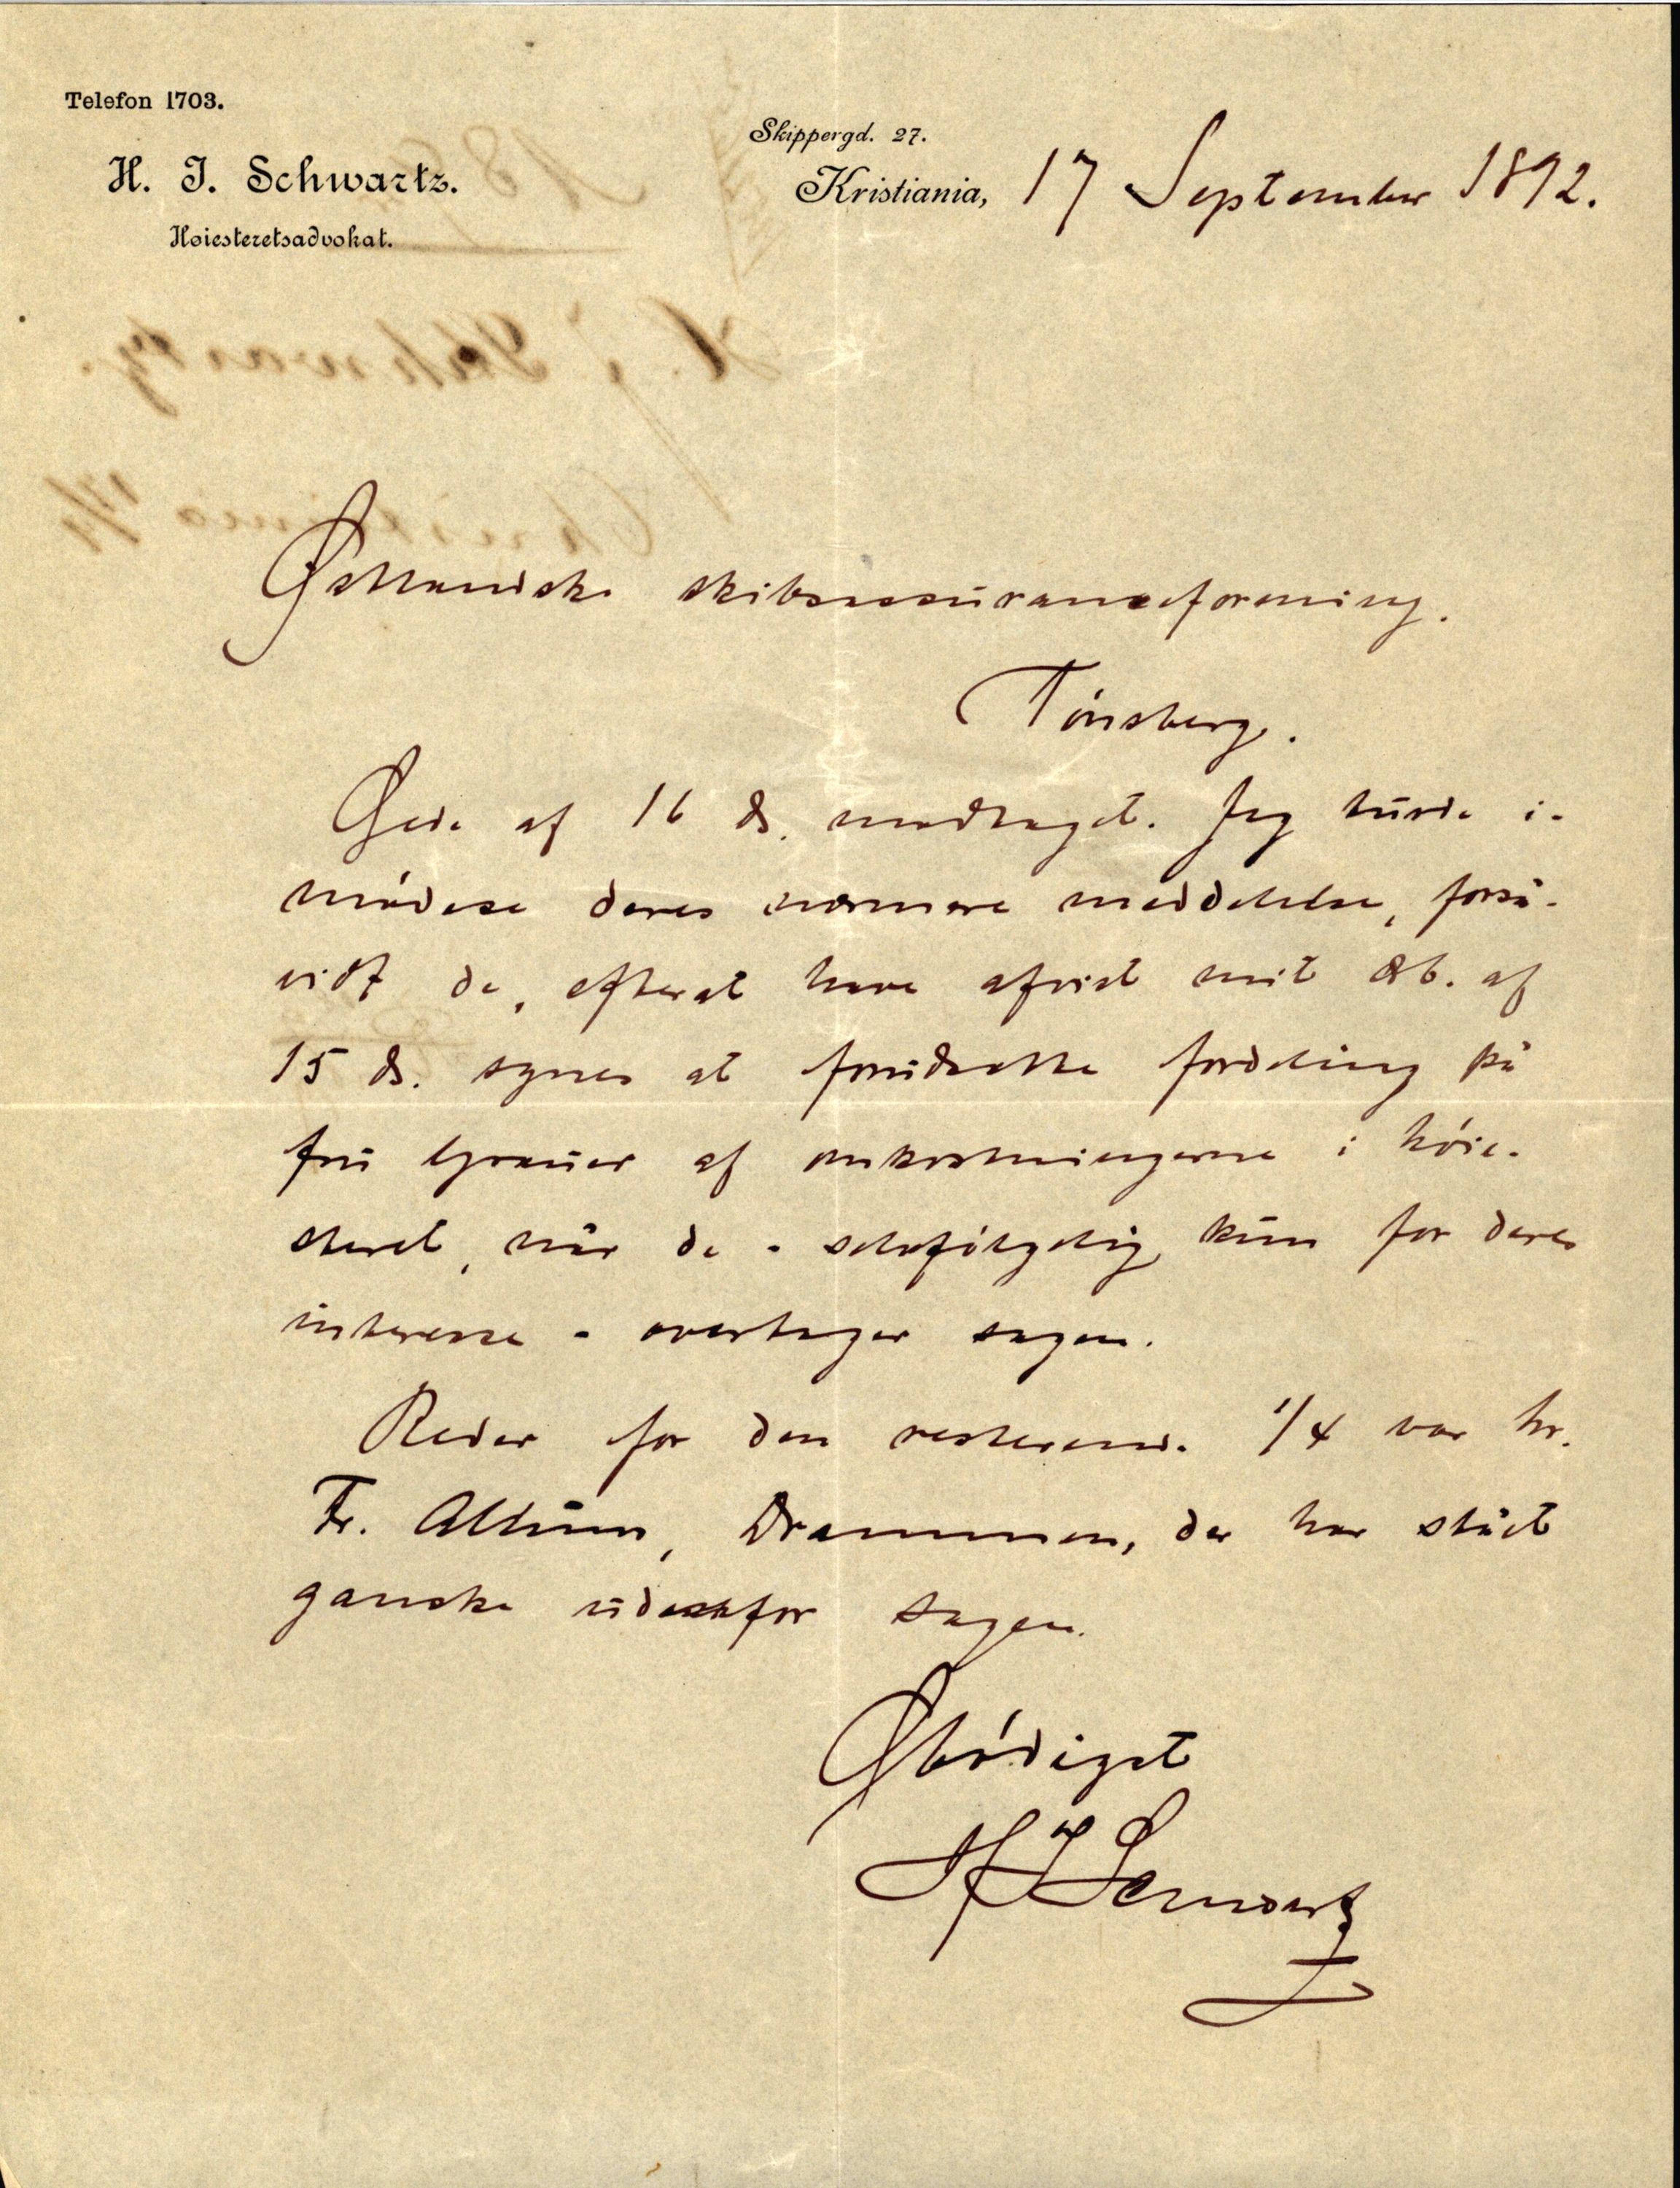 Telefon 1703.
H. J. Schwartz.
Høiesteretsadvokat.
Skippergd. 27.
Kristiania, 17 September 1892.
Østlandske skibsassuranceforening.
Tönsberg.
Ærede af 16 ds. modtaget. Jeg turde i-
mödese deres nærmere meddelelse, forså-
vidt de, efterat have afvist mit tilb. af
15 ds. synes at forudsætte fordeling på
fru Grauer af omkostningerne i höie-
steret, når de - selvfölgelig kun for deres
interesse - overtager sagen.
Reder for den resterende 1/4 var hr.
Fr. Altum, Drammen, der har stået
ganske udenfor sagen.
Ærbödigst
HJSchwartz